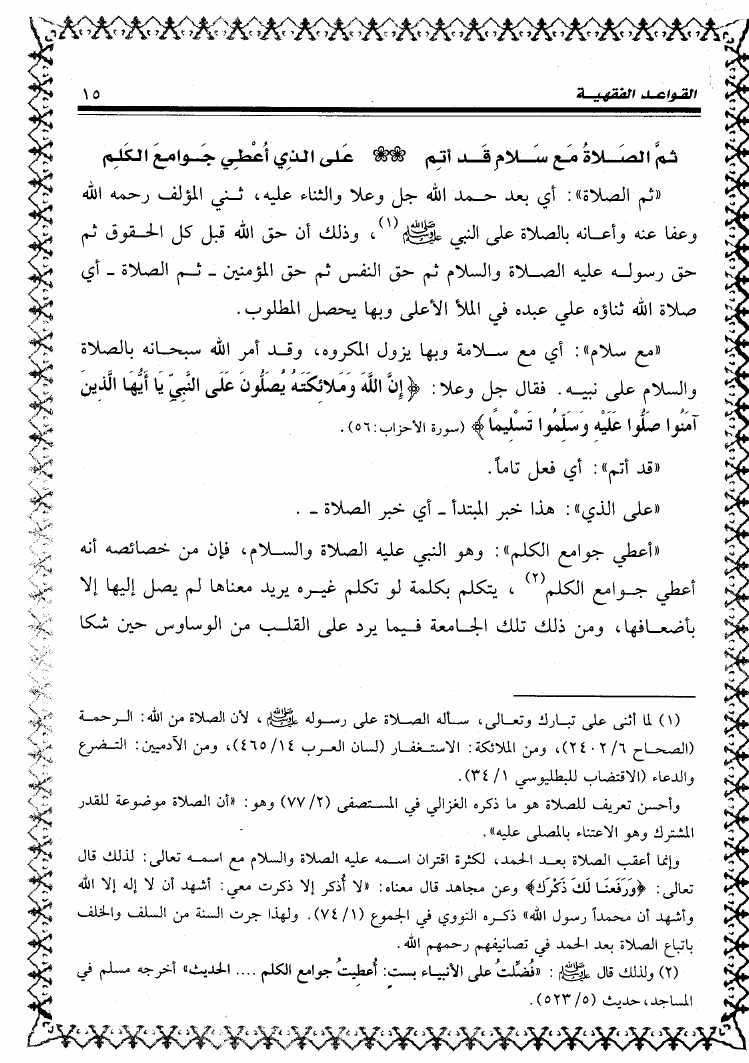 القواعد الفقهية ١٥
ثمَّ الصَّلاةُ مَع سَلامٍ قَد أتم ❀❀ عَلى الذي أُعْطِي جَوامعَ الكَلِمِ
«ثم الصلاة»: أي بعد حمد الله جل وعلا والثناء عليه، ثني المؤلف رحمه الله
وعفا عنه وأعانه بالصلاة على النبي ﷺ(١)، وذلك أن حق الله قبل كل الحقوق ثم
حق رسوله عليه الصلاة والسلام ثم حق النفس ثم حق المؤمنين ـ ثم الصلاة ـ أي
صلاة الله ثناؤه علي عبده في الملأ الأعلى وبها يحصل المطلوب.
«مع سلام»: أي مع سلامة وبها يزول المكروه، وقد أمر الله سبحانه بالصلاة
والسلام على نبيه. فقال جل وعلا: ﴿إِنَّ اللَّهَ وَمَلائكَتَهُ يُصَلُّونَ عَلَى النَّبِيِّ يَا أَيُّهَا الَّذِينَ
آمَنُوا صَلُّوا عَلَيْهِ وَسَلِّمُوا تَسْلِيمًا﴾ (سورة الأحزاب:٥٦).
«قد أتم»: أي فعل تاماً.
«على الذي»: هذا خبر المبتدأ ـ أي خبر الصلاة ـ .
«أعطي جوامع الكلم»: وهو النبي عليه الصلاة والسلام، فإن من خصائصه أنه
أعطي جوامع الكلم(٢) ، يتكلم بكلمة لو تكلم غيره يريد معناها لم يصل إليها إلا
بأضعافها، ومن ذلك تلك الجامعة فيما يرد على القلب من الوساوس حين شكا
(١) لما أثنى على تبارك وتعالى، سأله الصلاة على رسوله ﷺ، لأن الصلاة من الله: الرحمة
(الصحاح ٢٤٠٢/٦)، ومن الملائكة: الاستغفار (لسان العرب ٤٦٥/١٤)، ومن الآدميين: التضرع
والدعاء (الاقتضاب للبطليوسي ٣٤/١).
وأحسن تعريف للصلاة هو ما ذكره الغزالي في المستصفى (٧٧/٢) وهو: «أن الصلاة موضوعة للقدر
المشترك وهو الاعتناء بالمصلى عليه».
وإنما أعقب الصلاة بعد الحمد، لكثرة اقتران اسمه عليه الصلاة والسلام مع اسمه تعالى: لذلك قال
تعالى: ﴿وَرَفَعنَا لَكَ ذكْرَكَ﴾ وعن مجاهد قال معناه: «لا أُذكر إلا ذكرت معي: أشهد أن لا إله إلا الله
وأشهد أن محمداً رسول الله» ذكره النووي في المجموع (٧٤/١). ولهذا جرت السنة من السلف والخلف
باتباع الصلاة بعد الحمد في تصانيفهم رحمهم الله.
(٢) ولذلك قال ﷺ : «فُضِّلتُ على الأنبياء بستٍ: أُعطِيتُ جوامع الكلم .... الحديث» أخرجه مسلم في
المساجد، حديث (٥٢٣/٥).